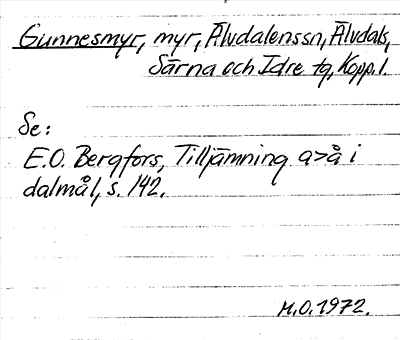 Gunnesmyr, myr, Älvdalenssn, Älvdals,
Särna och Idre tg, Kopp. l.
Se:
E.O. Bergfors, Tilljämning a>å i
dalmål, s. 142.
M.O. 1972.